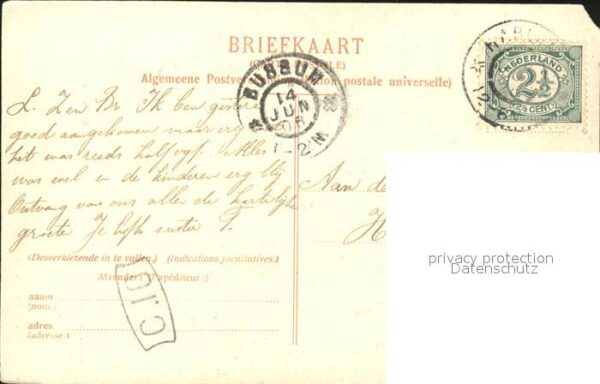 BRIEFKAART
Algemeene Postve
ion postale universelle)
BUSSUM
14
JUN
06
1-2 N
HAR
12
NEDERLAND
2½
2½ CENT
L. Z en Br. Ik ben gisteren
goed aangekomen maar erg
het was reeds half vyf. Alles
was wel en de kinderen erg blij
Ontvang van ons alle de hartelijke
groete Je liefh zuster T.
Aan de
H
(Desverkiezende in te vullen.) (Indications facultatives.)
Afzender: (Expéditeur:)
naam
(nom.)
adres
(adresse.)
privacy protection
Datenschutz